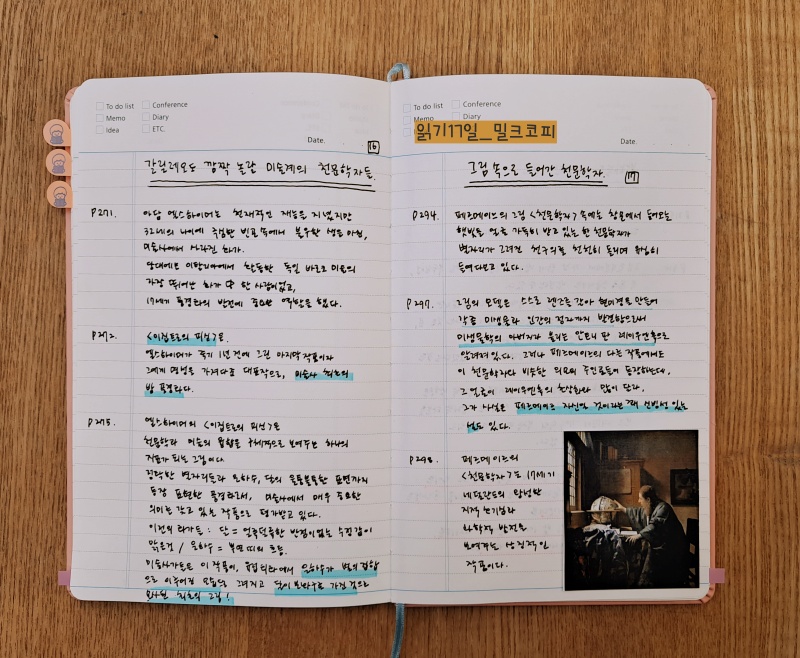 To do list
Conference
Memo
Diary
Idea
ETC.
Date.
16
갈릴레오도 깜짝 놀란 미술계의 천문학자들.
P271.
아담 엘스하이머는 천재적인 재능을 지녔지만
32세의 나이에 극심한 빈곤 속에서 불우한 생을 마친,
미술사에서 사라진 화가.
당대에는 이탈리아에서 활동한 독일 바로크 미술의
가장 뛰어난 화가 中 한 사람이었고,
17세기 풍경화의 발전에 중요한 역할을 했다.
P272.
<이집트로의 피신>은.
엘스하이머가 죽기 1년 전에 그린 마지막 작품이자
그에게 명성을 가져다준 대표작으로, 미술사 최초의
밤 풍경화다.
P275.
엘스하이머의 <이집트로의 피신>은
천문학과 미술의 융합을 구체적으로 보여주는 하나의
작품이 되는 그림이다.
정확한 별자리들과 은하수, 달의 울퉁불퉁한 표면까지
등장 표현한 풍경화로서, 미술사에서 매우 중요한
의미를 갖고 있는 작품으로 평가받고 있다.
이전의 화가들 : 달 = 얼룩덜룩한 반점이 없는 수정같이
맑은 것 / 은하수 = 부연 띠의 흐름.
미술사가들은 이 작품이, 유럽 회화에서 은하수가 별의 집합
으로 이루어진 모습으로 그려지고 달이 분화구를 가진 것으로
묘사된 최초의 그림!
To do list
Conference
Memo
Diary
읽기17일_밀크코피
Date.
그림 속으로 들어간 천문학자.
17
P294.
페르메이르의 그림 <천문학자> 속에는 창문에서 들어오는
햇빛을 얼굴 가득히 받고 있는 한 천문학자가
별자리가 그려진 천구의를 천천히 돌리며 유심히
들여다보고 있다.
P297.
그림의 모델은 스스로 렌즈를 갈아 현미경을 만들어
각종 미생물과 인간의 정자까지 발견함으로써
미생물학의 아버지라 불리는 안토니 판 레이우엔훅으로
알려져 있다. 그러나 페르메이르의 다른 작품에서도
이 천문학자와 비슷한 외모의 주인공들이 등장하는데,
그 얼굴이 레이우엔훅의 초상화와 많이 닮다.
그가 사실은 페르메이르 자신일 것이라는 견해 신빙성 있는
설도 있다.
P298.
페르메이르의
<천문학자>은 17세기
네덜란드의 왕성한
지적 호기심과
과학적 발전을
보여주는 상징적인
작품이다.